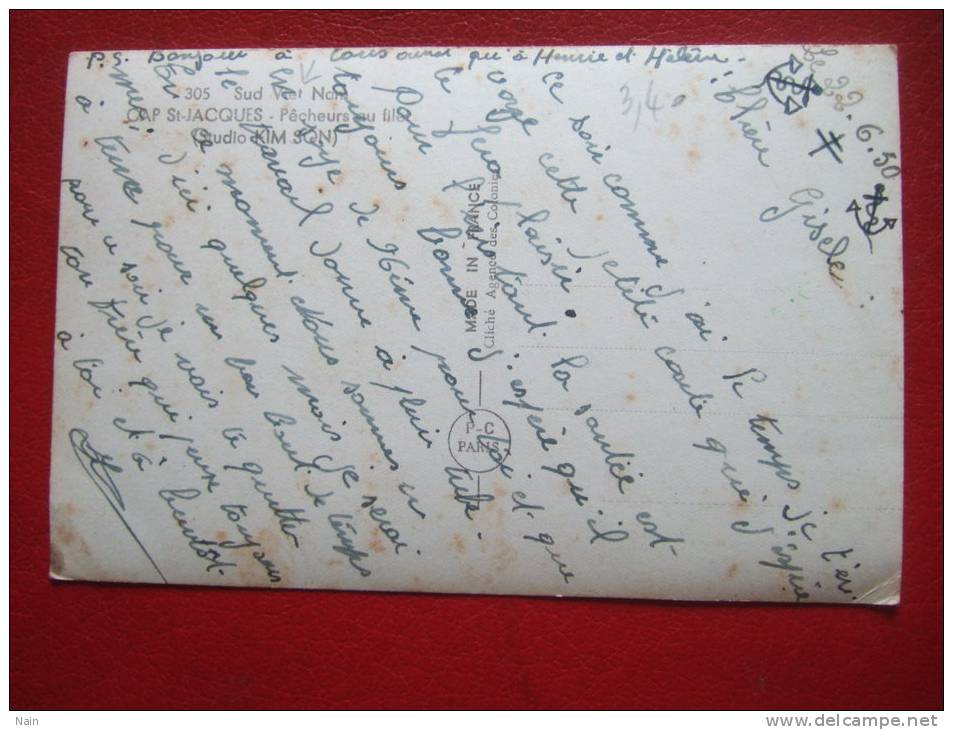 P.S. Bonjour à tous ainsi qu'à Henrie et Hélène.
305 Sud Viet Nam
CAP St-JACQUES - Pêcheurs au filet
(Studio KIM SON)
3,40
MADE IN FRANCE
Cliché Agence des Colonies
P-C
PARIS
Le 22.6.50
Chère Gisèle:
ce soir comme j'ai le temps je t'en
voye cette petite carte qui j'espère
te fera plaisir. La santé est
pour l'instant bonne j'espère qu'il
en soit de même pour toi et que
le travail donne à plein tube.
Le moment nous sommes en
mer d'ici quelques mois je serai
à terre pour un bon bout de temps
pour ce soir je vais te quitter
ton frère qui pense toujours
à toi et à bientôt.
Nain
www.delcampe.net